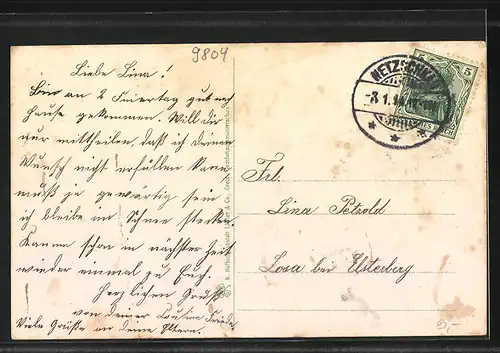 9804
Liebe Lina!
Bin am 2 Feiertag gut nach
Hause gekommen. Will dir
nur mittheilen, daß ich deinen
Wunsch nicht erfüllen kann
muß ja gewärtig sein
ich bleibe im Schnee stecken
Kann schon in nächster Zeit
wieder einmal zu Euch.
Herzlichen Gruß
von deiner Cousine Frieda
Viele Grüße an deine Eltern.
NETZSCHKAU
-3.1.
5
Frl.
Lina Petzold
Losa bei Elsterberg